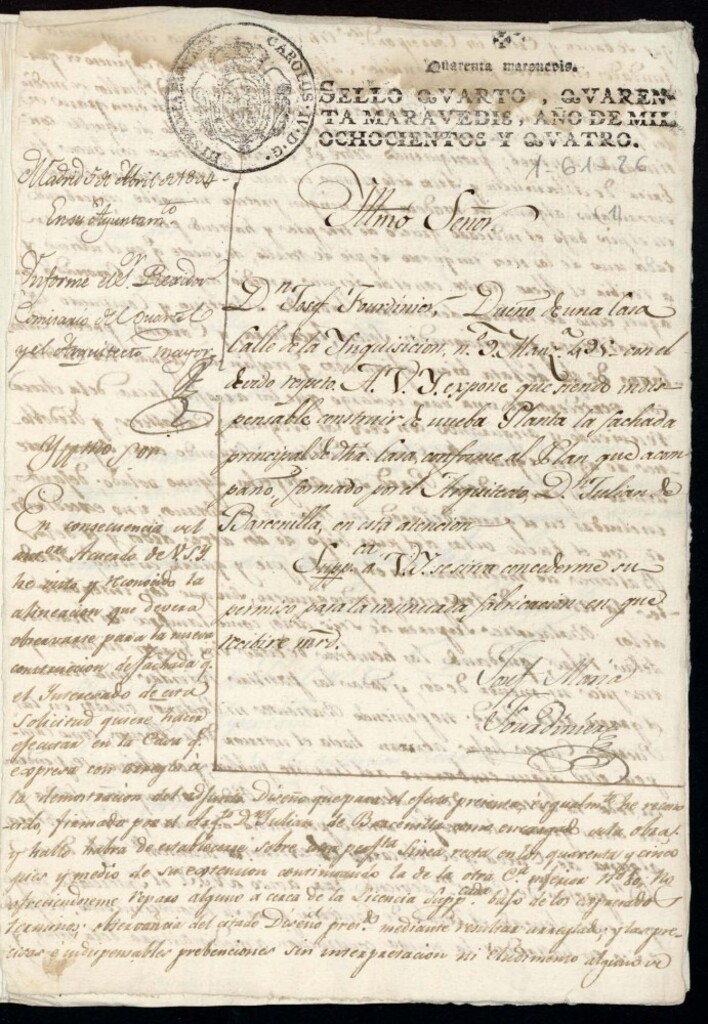 CAROLUS IV D. G. HISPANIAR.
Quarenta maravedis.
SELLO QVARTO, QVAREN-
TA MARAVEDIS, AÑO DE MIL
OCHOCIENTOS Y QVATRO.
1-61-26
(1)
Madrid 5 de Abril de 1804
En su Ayuntam.to
Informe el S.or Regidor
Comisario del Quartel
y el Arquitecto mayor
Yll.mo Señor.
D.n Josef Fourdinier, Dueño de una Casa
Calle de la Inquisicion, n.o 9. Manz.a 495. con el
devido respeto. A. V. Y. expone que siendo indis-
pensable construir de nueba Planta la fachada
principal de dha. Casa, conforme al Plan que acom-
paño, formado por el Arquitecto, D.n Julian de
Barcenilla, en esta atencion
Supp.ca a V. Y. se sirva concederme su
permiso para la insinuada fabricacion en que
recibire mrd.
Josef Maria
Fourdinier
Yllmo. Sor.
En consecuencia del
Acuerdo de V.S.Y.
he visto y reconocido la
alineacion que devera
observarse para la nueva
construccion de fachada q.e
el Interesado de esta
solicitud quiere hacer
efectuar en la Casa q.e
expresa con arreglo á
la demostracion del adjunto Diseño que para el efecto presenta, é igualm.te he recono-
cido, firmado por el D.n Julian de Barcenilla como encargado de la obra,
y hallo habrá de establecerse sobre una perfecta linea recta en los quarenta y cinco
pies y medio de su extension continuando la de la otra Casa inferior N.o 80. No
ofreciendoseme reparo alguno a cerca de la Licencia Supp.cada bajo de los expresados
terminos, observancia del citado Diseño mediante resultar arreglado, y las pre-
cisas é indispensables prebenciones sin interpretacion ni eludimento alguno de